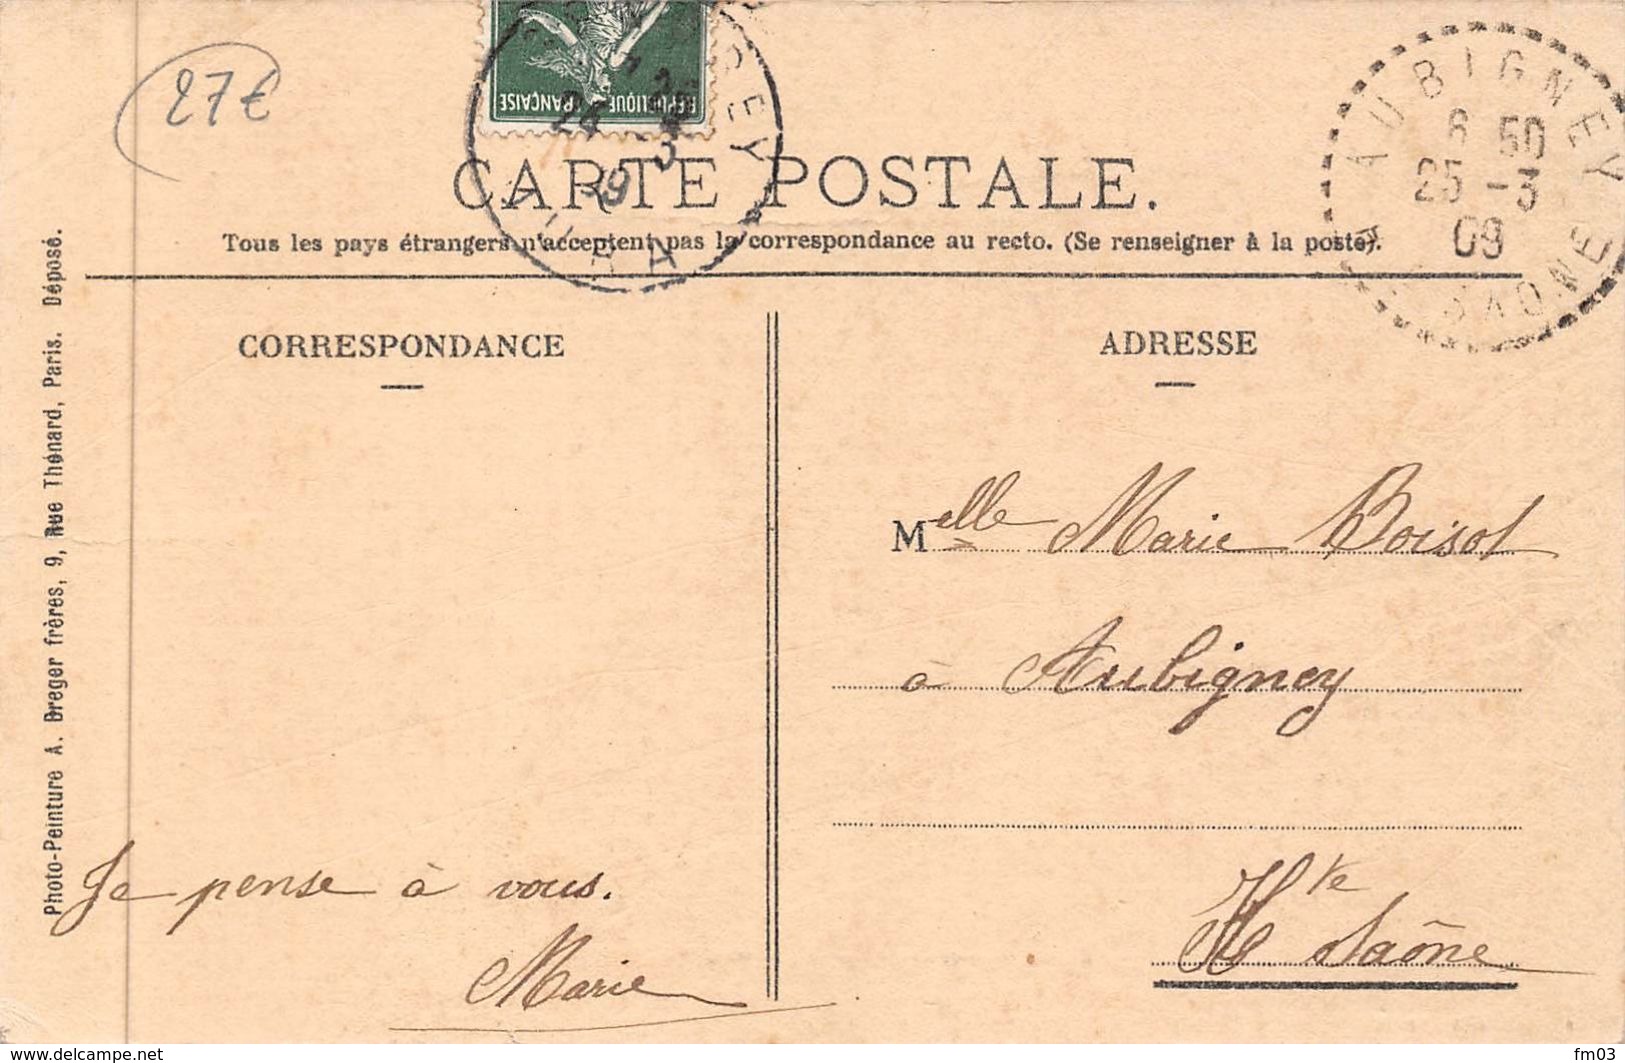 27€
RÉPUBLIQUE FRANÇAISE
CARTE POSTALE.
Tous les pays étrangers n'acceptent pas la correspondance au recto. (Se renseigner à la poste).
AUBIGNEY
6 50
25 -3
09
Photo-Peinture A. Dreger frères, 9, Rue Thénard, Paris. Déposé.
CORRESPONDANCE
Je pense à vous.
Marie
ADRESSE
Melle Marie Boisot
à Aubigney
Hte Saône
www.delcampe.net
fm03